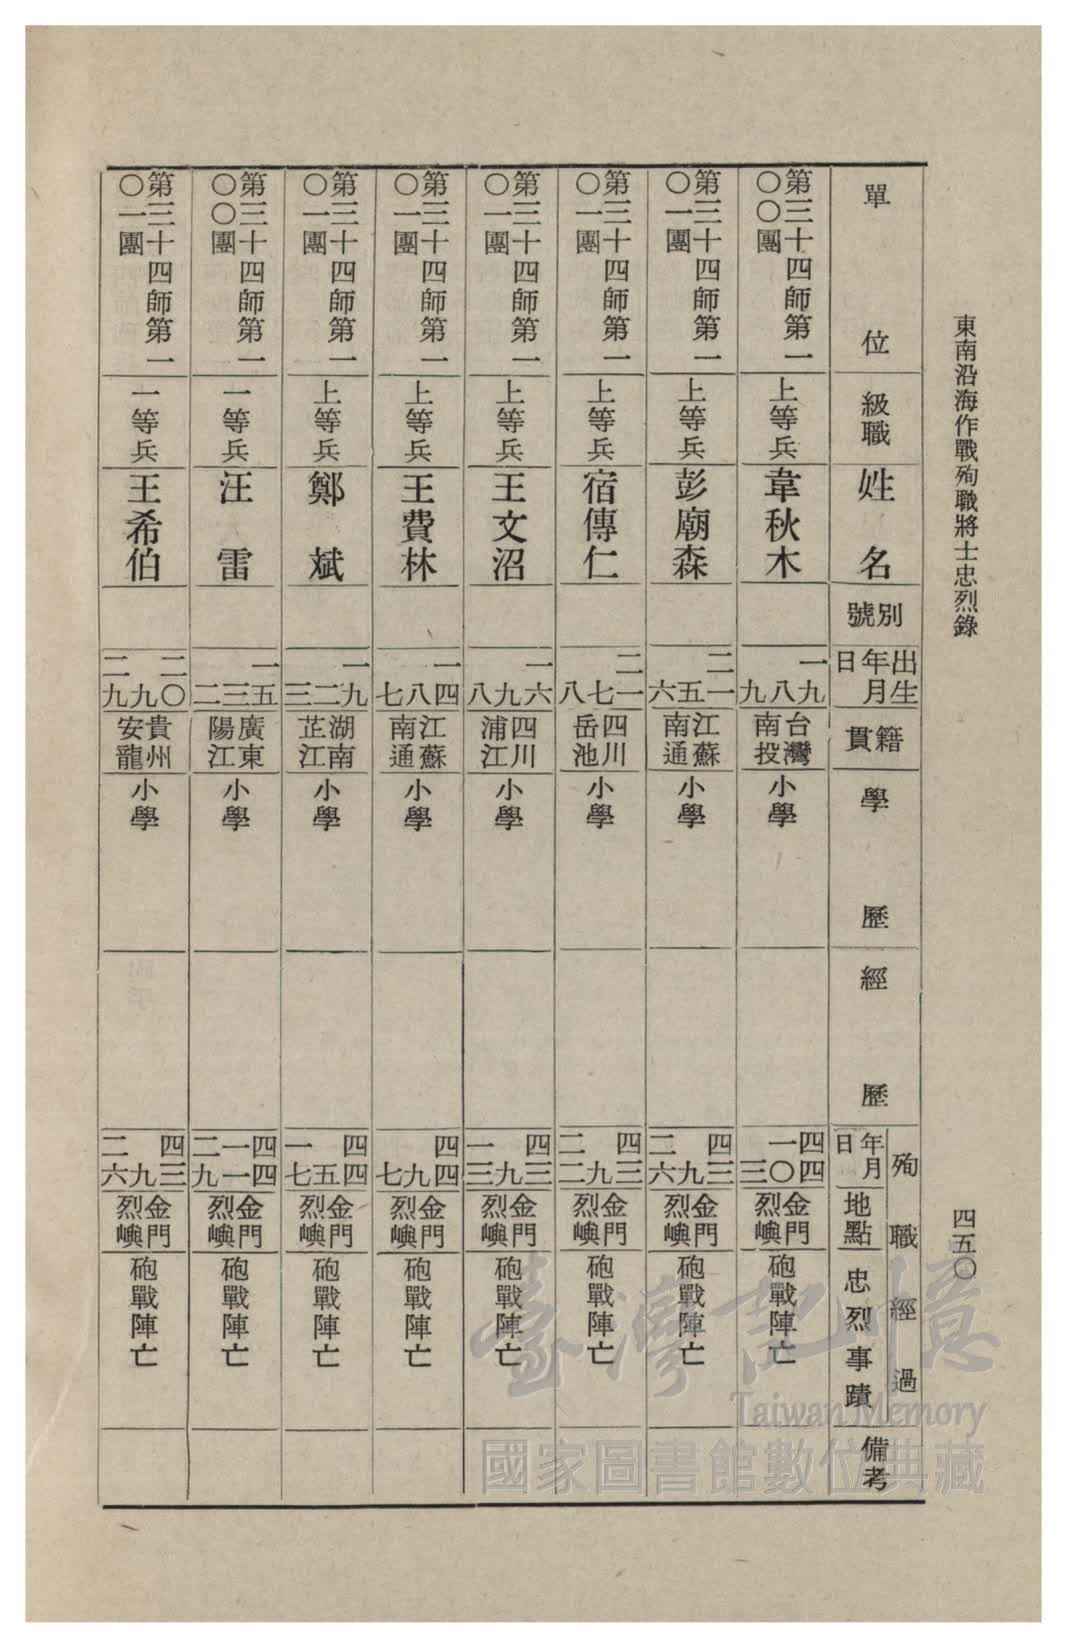 東南沿海作戰殉職將士忠烈錄
四五〇
單位
級職
姓名
別號
出生
年月日
籍貫
學歷
經歷
殉職經過
年月日
地點
忠烈事蹟
備考
第三十四師第一
〇〇團
上等兵
韋秋木
一九
八
九
台灣
南投
小學
四四
一〇
三
金門
烈嶼
砲戰陣亡
第三十四師第一
〇一團
上等兵
彭廟森
二一
五
六
江蘇
南通
小學
四三
九
二六
金門
烈嶼
砲戰陣亡
第三十四師第一
〇一團
上等兵
宿傳仁
二一
七
八
四川
岳池
小學
四三
九
二二
金門
烈嶼
砲戰陣亡
第三十四師第一
〇一團
上等兵
王文沼
一六
九
八
四川
浦江
小學
四三
九
一三
金門
烈嶼
砲戰陣亡
第三十四師第一
〇一團
上等兵
王費林
一四
八
七
江蘇
南通
小學
四四
九
七
金門
烈嶼
砲戰陣亡
第三十四師第一
〇一團
上等兵
鄭斌
一九
二
三
湖南
芷江
小學
四四
五
一七
金門
烈嶼
砲戰陣亡
第三十四師第一
〇〇團
一等兵
汪雷
一五
三
二
廣東
陽江
小學
四四
一一
二九
金門
烈嶼
砲戰陣亡
第三十四師第一
〇一團
一等兵
王希伯
二〇
九
二九
貴州
安龍
小學
四三
九
二六
金門
烈嶼
砲戰陣亡
臺灣記憶
Taiwan Memory
國家圖書館數位典藏